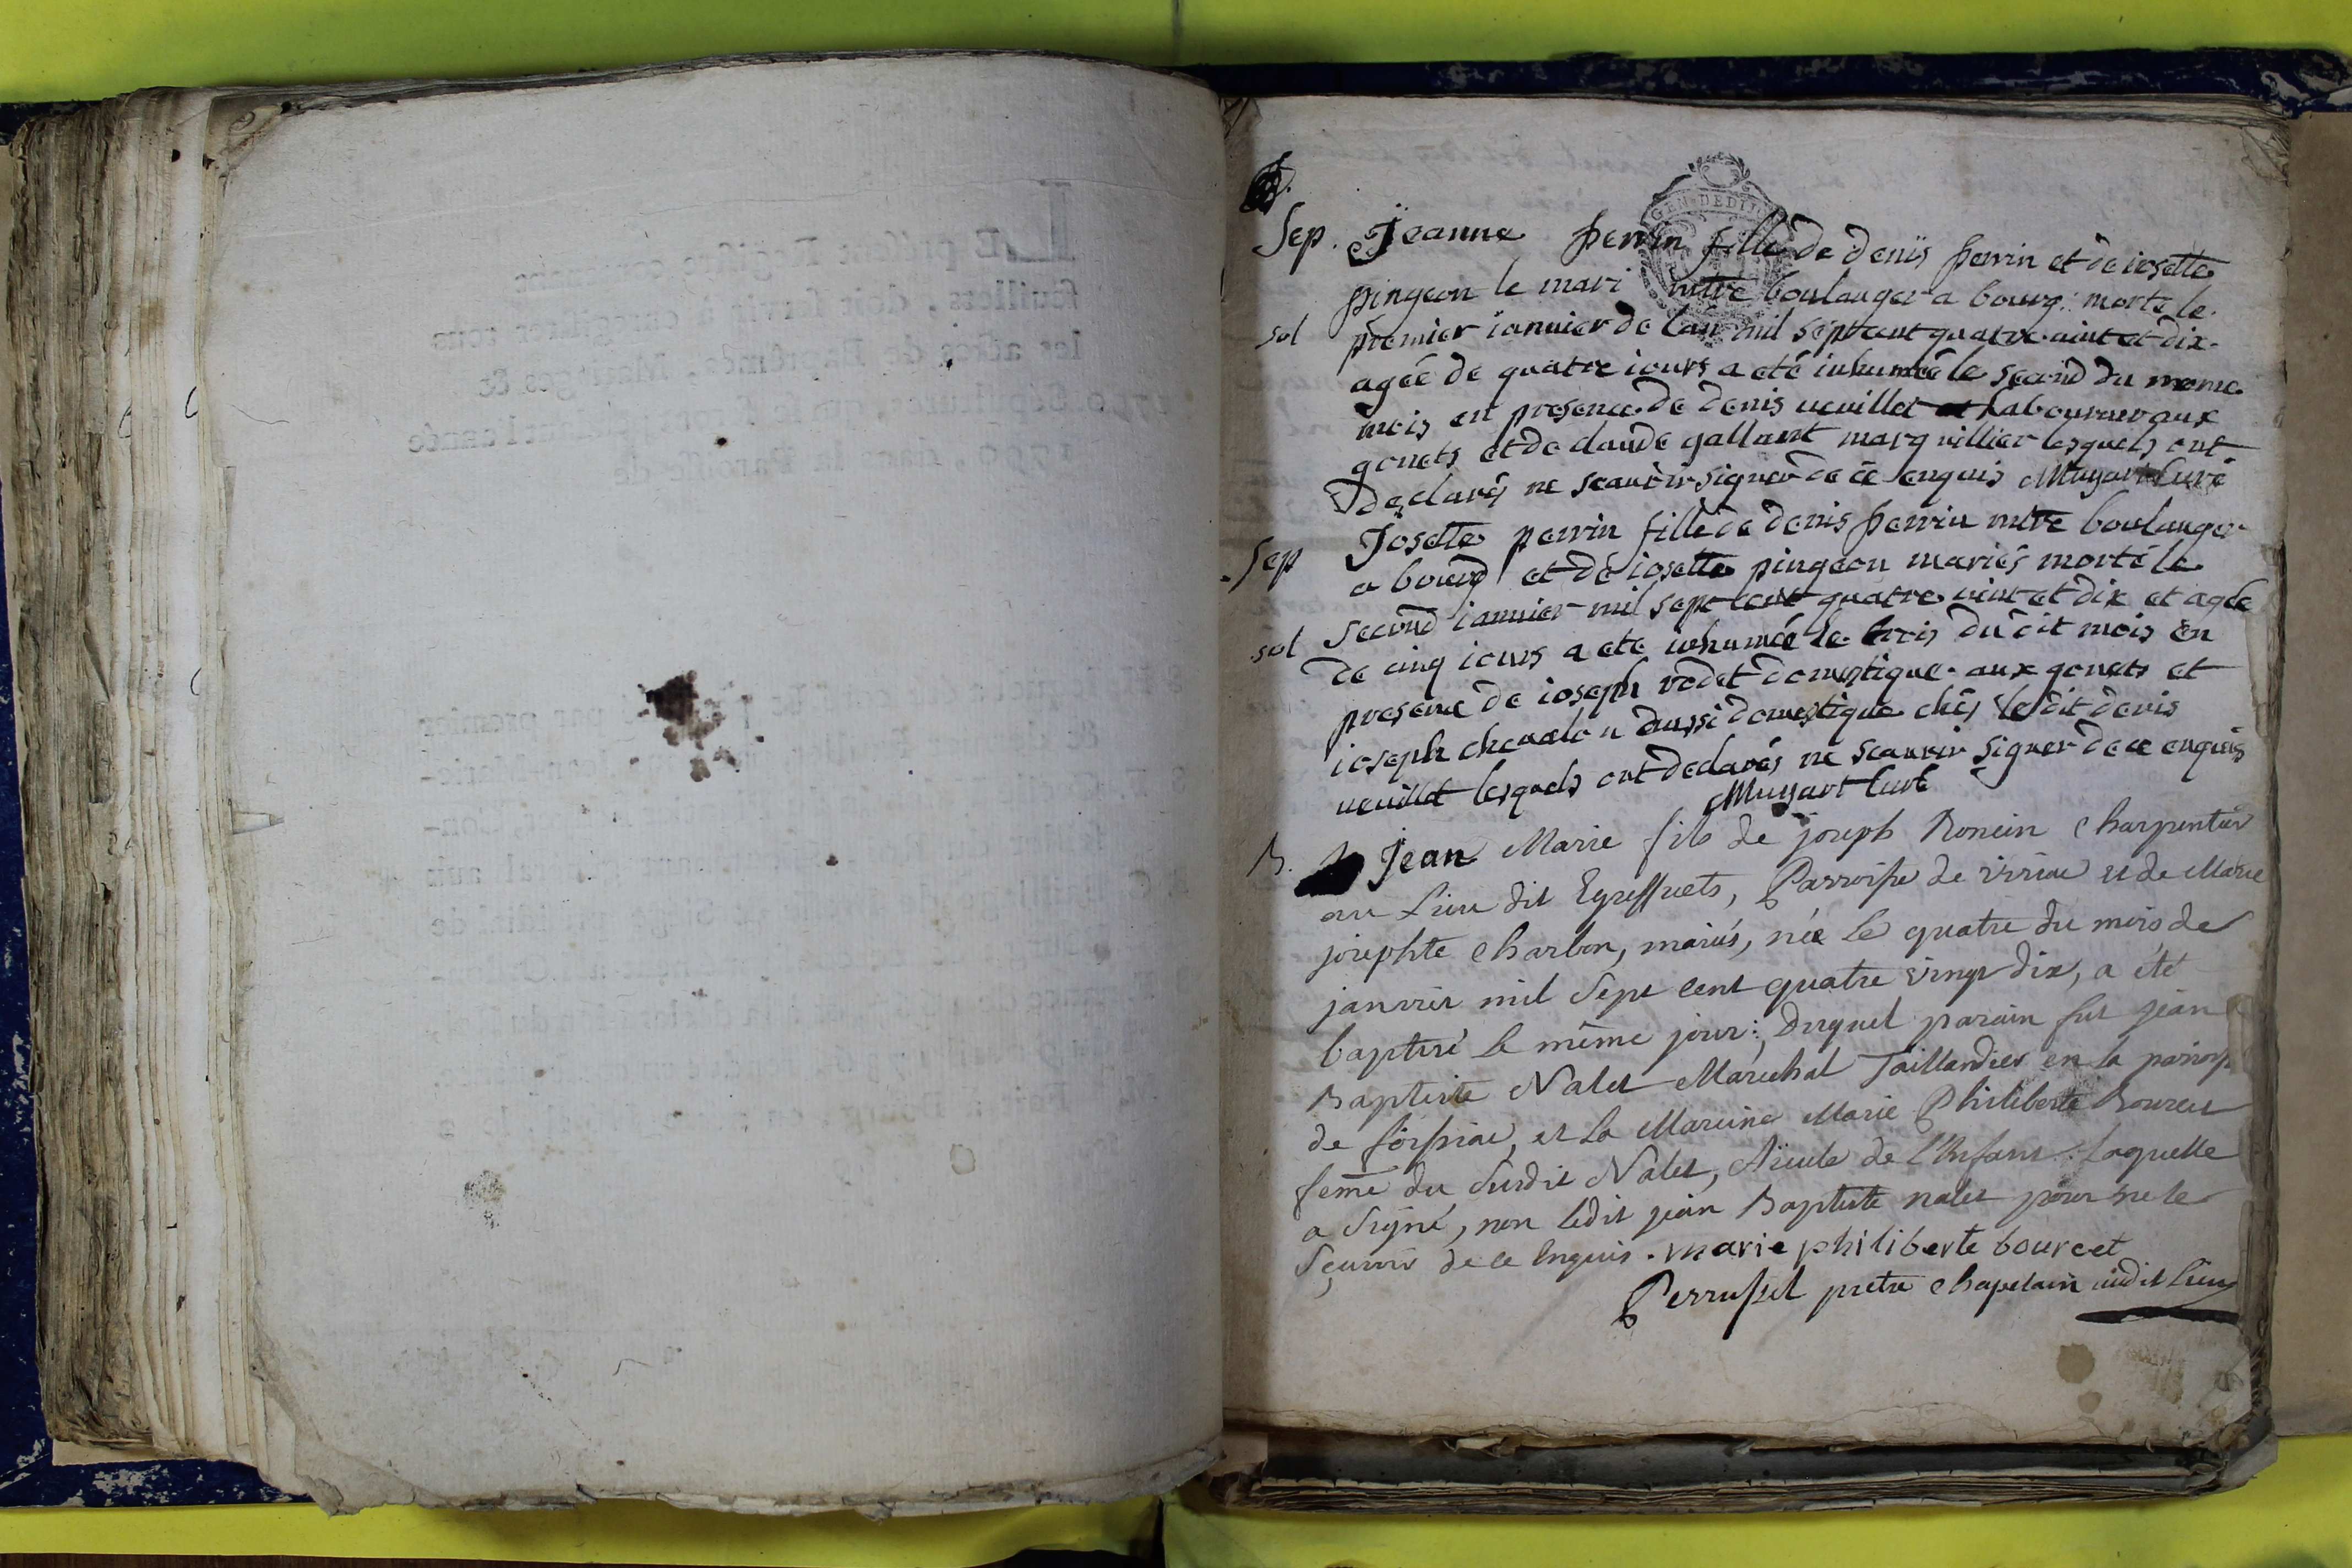 Sep. Jeanne perrin fille de denis perrin et de iosette
pingeon le mari mtre boulanger a bourg: morte le
sol premier ianvier de lan mil sept cent quatre vint et dix
agée de quatre iours a eté inhumée le second du meme
mois en presence de denis veuillet laboureur aux
gonets et de claude gallant marguillier lesquels ont
declarés ne scauvir signer de ce enquis Muyart Curé
Sep Josette perrin fille de denis perrin mtre boulanger
a bourg et de iosette pingeon mariés morte le
second ianvier mil sept cent quatre vint et dix et agée
sol de cinq iours a ete inhumée le trois du dit mois en
presence de ioseph vodet domestique aux gonets et
ioseph chevalon aussi domestique chés le dit denis
veuillet lesquels ont declarés ne scauvir signer de ce enquis
Muyart Curé
B. Jean Marie fils de joseph Roncin Charpentier
au Lieu dit Egreffiets, Parroisse de viriac et de Marie
josephte Charbon, mariés, née le quatre du mois de
janvier mil Sept cent quatre vingt dix, a été
baptisé le même jour: Duquel parain fut jean
Baptiste Nalet Marechal Taillandier en la parroisse
de foissiac, et la Mareine Marie Philiberte Bourcet
feme du Susdit Nalet, Aieule de l'Enfant. laquelle
a Signé, non ledit jean Baptiste nalet pour ne le
Sçavoir de ce Enquis. marie philiberte bourcet
Perruset pretre Chapelain audit lieu